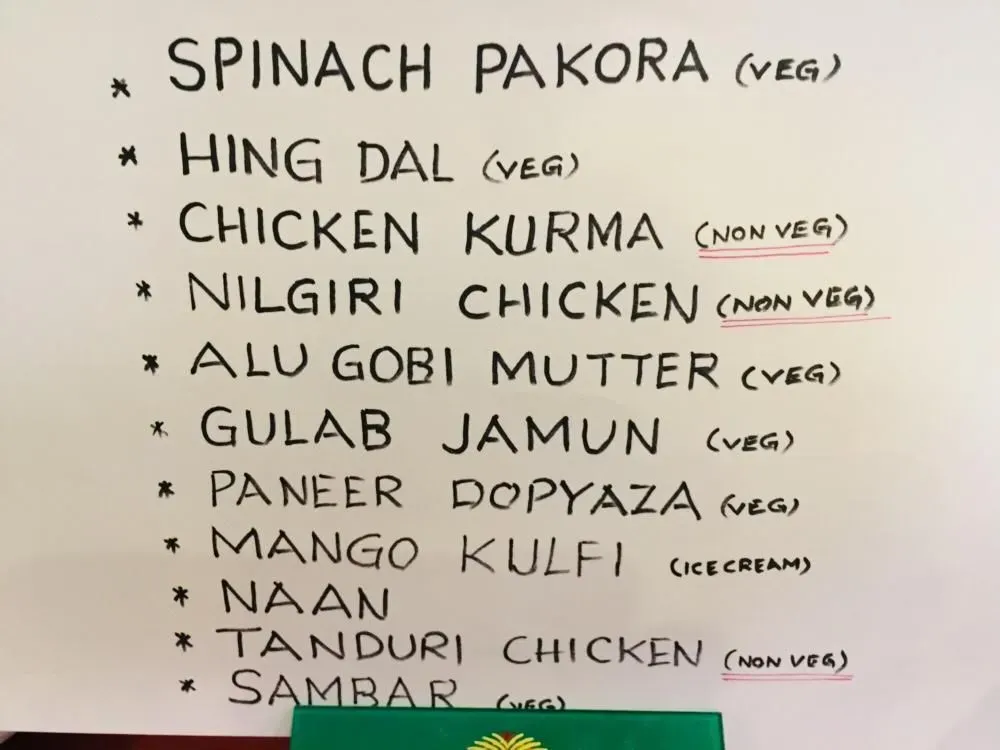 * SPINACH PAKORA (VEG)
* HING DAL (VEG)
* CHICKEN KURMA (NON VEG)
* NILGIRI CHICKEN (NON VEG)
* ALU GOBI MUTTER (VEG)
* GULAB JAMUN (VEG)
* PANEER DOPYAZA (VEG)
* MANGO KULFI (ICE CREAM)
* NAAN
* TANDURI CHICKEN (NON VEG)
* SAMBAR (VEG)